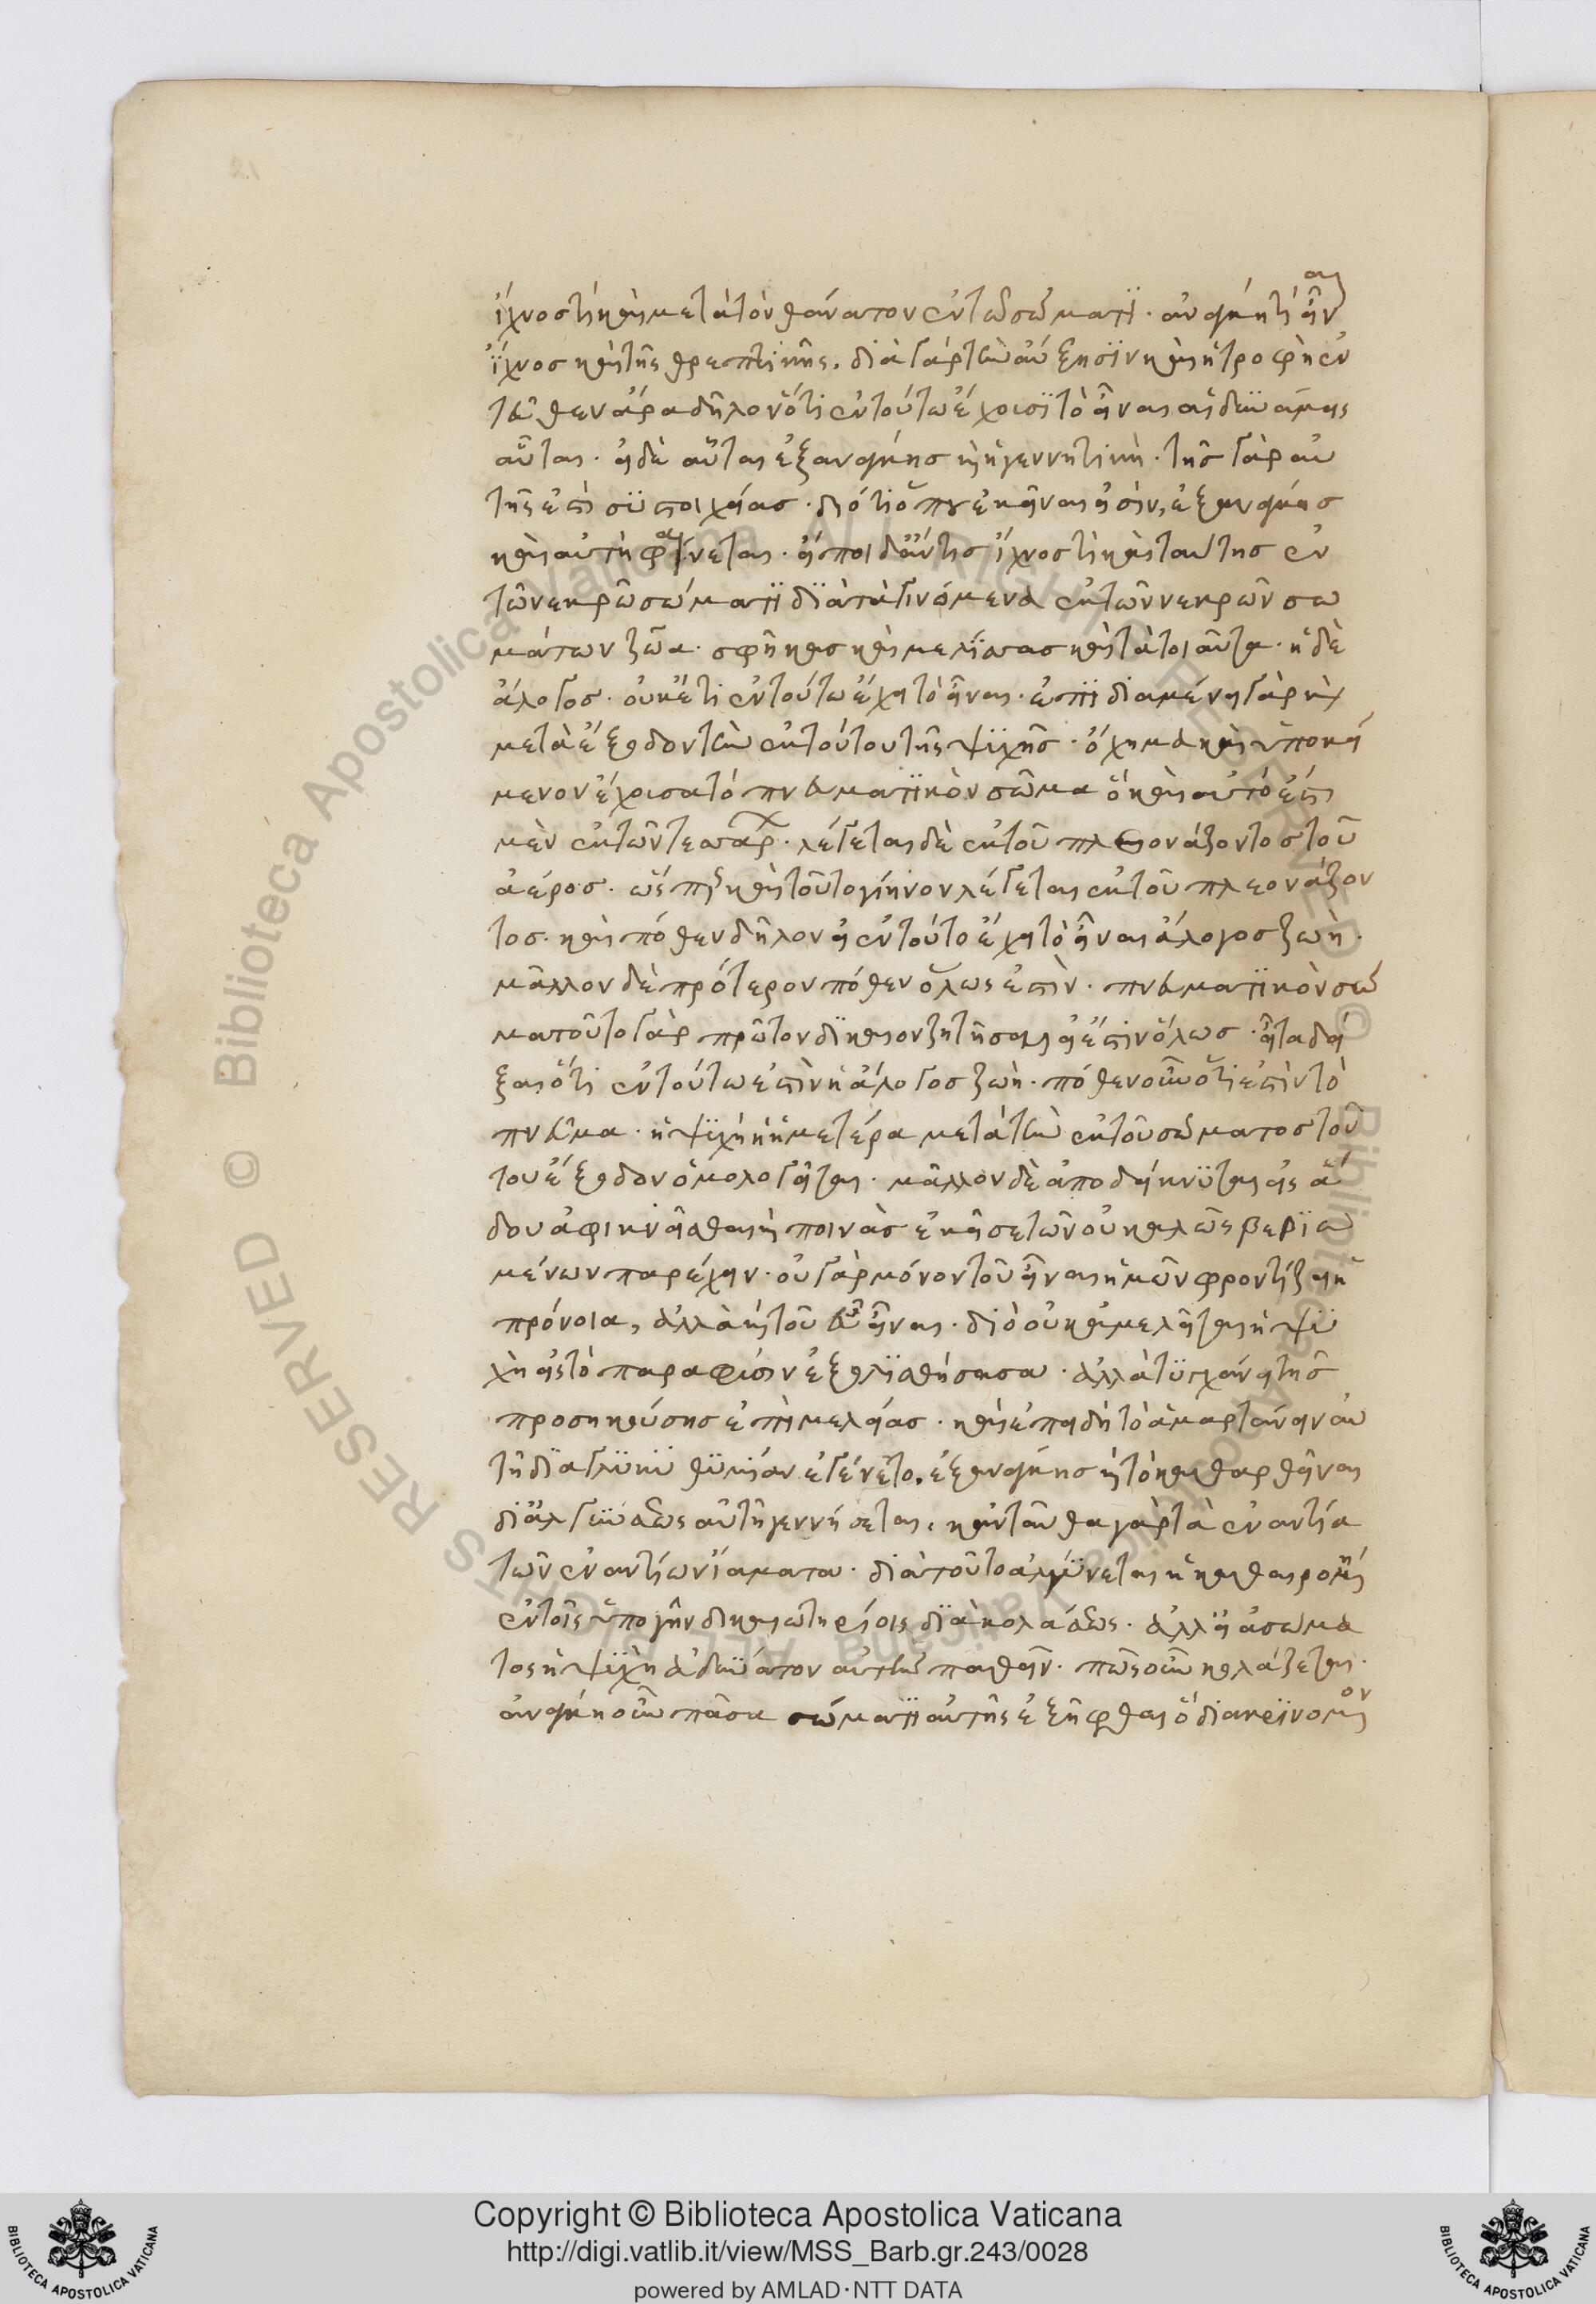 ἴχνος τί καὶ μετὰ τὸν θάνατον ἐν τῶ σώματι. ἀνάγκη τί εἶναι
ἴχνος καὶ τῆς θρεπτικῆς. διὰ γὰρ τὴν αὔξησιν καὶ ἡ τροφὴ ἐν
τεῦθεν ἄρα δῆλον ὅτι ἐν τούτω ἔχουσι τὸ εἶναι αἱ δυνάμεις
αὗται. εἰ δὲ αὗται ἐξ ἀνάγκης καὶ ἡ γεννητικὴ. τῆς γὰρ αὐ
τῆς ἐστὶ συστοιχείας. διότι ὅπου ἐκεῖναι εἰσὶν, ἐξ ἀνάγκης
καὶ αὐτὴ φαίνεται. εἴποι δἄν τις ἴχνος τὶ καὶ ταύτης ἐν
τῶ νεκρῶ σώματι διὰ τὰ γινόμενα ἐκ τῶν νεκρῶν σω
μάτων ζῶα. σφῆκας καὶ μελίσσας καὶ τὰ τοιαῦτα. ἡ δὲ
ἄλογος. οὐκέτι ἐν τούτω ἔχει τὸ εἶναι. ἐπιδιαμένει γὰρ καὶ
μετὰ ἔξοδον τὴν ἐκ τούτου τῆς ψυχῆς. ὄχημα καὶ ὑποκεί
μενον ἔχουσα τό πνευματικὸν σῶμα ὃ καὶ αὐτό ἐστι
μὲν ἐκ τῶν τεσσάρων. λέγεται δὲ ἐκ τοῦ πλεονάζοντος τοῦ
ἀέρος. ὥσπερ καὶ τοῦτο γήινον λέγεται ἐκ τοῦ πλεονάζον
τος. καὶ πόθεν δῆλον εἰ ἐν τούτο ἔχει τὸ εἶναι ἄλογος ζωὴ.
μᾶλλον δὲ πρότερον πόθεν ὅλως ἐστὶν. πνευματικὸν σῶ
μα τοῦτο γὰρ πρῶτον δίκαιον ζητῆσαι εἰ ἔστιν ὅλως. εἶτα δεῖ
ξαι ὅτι ἐν τούτω ἐστὶν ἡ ἄλογος ζωὴ. πόθεν οὖν ὅτι ἐστὶν τὸ
πνεῦμα. ἡ ψυχὴ ἡ ἡμετέρα μετὰ τὴν ἐκ τοῦ σώματος τοῦ
του ἔξοδον ὁμολογεῖται. μᾶλλον δὲ ἀποδείκνυται εἰς ἅ
δου ἀφικνεῖσθαι καὶ ποινὰς ἐκεῖσε τῶν οὐ καλῶς βεβιω
μένων παρέχειν. οὐ γὰρ μόνον τοῦ εἶναι ἡμῶν φροντίζει ἡ
πρόνοια, ἀλλὰ καὶ τοῦ εὖ εἶναι. διὸ οὐκ ἀμελεῖται ἡ ψυ
χὴ εἰς τὸ παρα φύσιν ἐξολισθήσασα. ἀλλὰ τυγχάνει τῆς
προσηκούσης ἐπιμελείας. καὶ ἐπειδὴ τὸ ἁμαρτάνειν αὐ
τῆ διὰ γλυκυθυμίαν ἐγένετο. ἐξ ἀνάγκης καὶ τὸ καθαρθῆναι
διἀλγύνσεως αὐτῆ γεννήσεται. κἀνταῦθα γὰρ τὰ ἐναντία
τῶν ἐναντίων ἰάματα. διὰ τοῦτο ἀλγύνεται ἡ καθαιρομένη
ἐν τοῖς ὑπο γῆν δικαιωτηρίοις διὰ κολάσεως. ἀλλ εἰ ἀσώμα
τος ἡ ψυχὴ ἀδύνατον αὐτὴν παθεῖν. πῶς οὖν κολάζεται.
ἀνάγκη οὖν πᾶσα σώματι αὐτῆς ἐξῆφθαι ὃ διακρινομενον